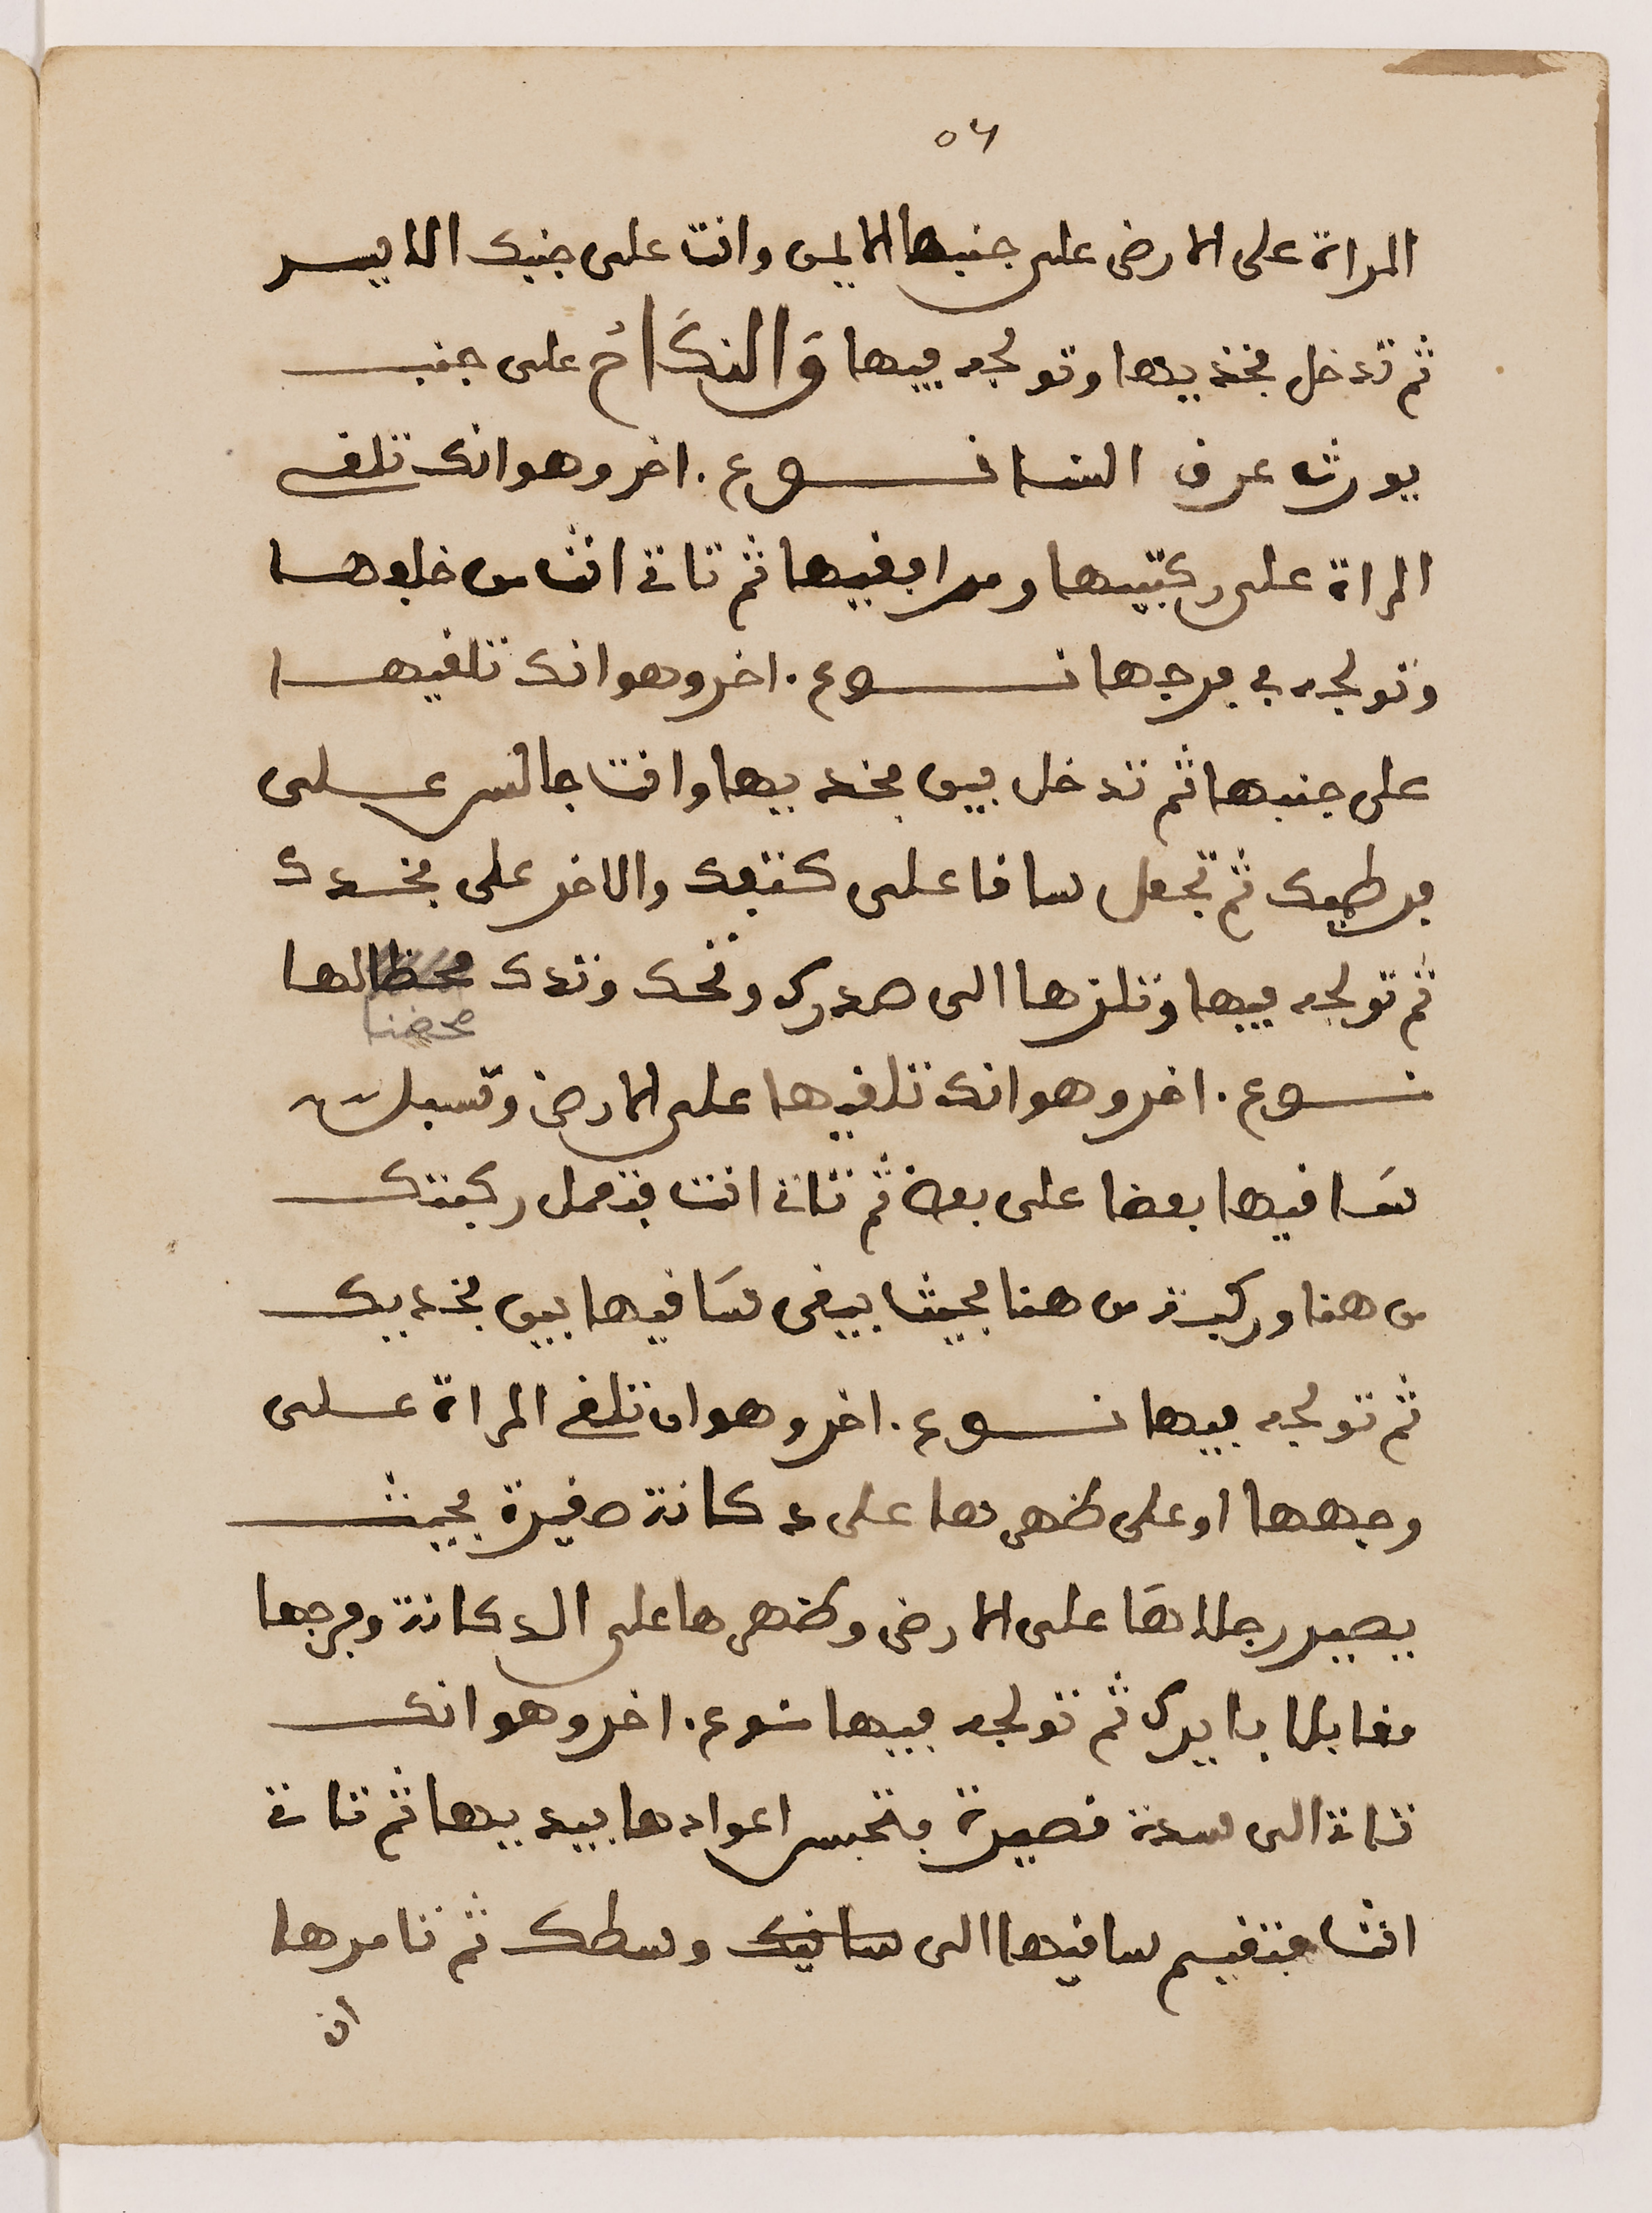 ٥٦
المراة على الارض على جنبها الايمن وانت على جنبك الايسر
ثم تدخل فخذيها وتولجه فيها وَالنكَاحُ على جنب
يورث عرق النسا نوع . اخر وهو انك تلقى
المراة على ركبتيها ومرافقيها ثم تاتى انت من خلفها
وتولجه في فرجها نوع . اخر وهو انك تلقيها
على جنبها ثم تدخل بين فخذيها وانت جالس على
ثم تجعل ساقا على كتفك والاخر على فخدك
ثم تولجه فيها وتلزها الى صدرك وتحك وتدك محظالها
محضنا
نوع . اخر وهو انك تلقيها على الارض
سَاقيها بعضا على بعض ثم تاتى انت فتعمل ركبتك
من هنا وركبة من هنا بحيث يبقى سَاقيها بين فخديك
ثم تولجه فيها نوع . اخر وهو ان تلقى المراة على
وجهها او على ظهرها على دكانة صغيرة بحيث
يصير رجلاهَا على الارض وظهرها على الدكانة وفرجها
مقابلا بايرك ثم تولجه فيها نوع . اخر وهو انك
تاتى الى سدة قصيرة فتحبس اعوادها بيديها ثم تاتى
انت فتقيم ساقيها الى ساقيك وسطك ثم تامرها
ان